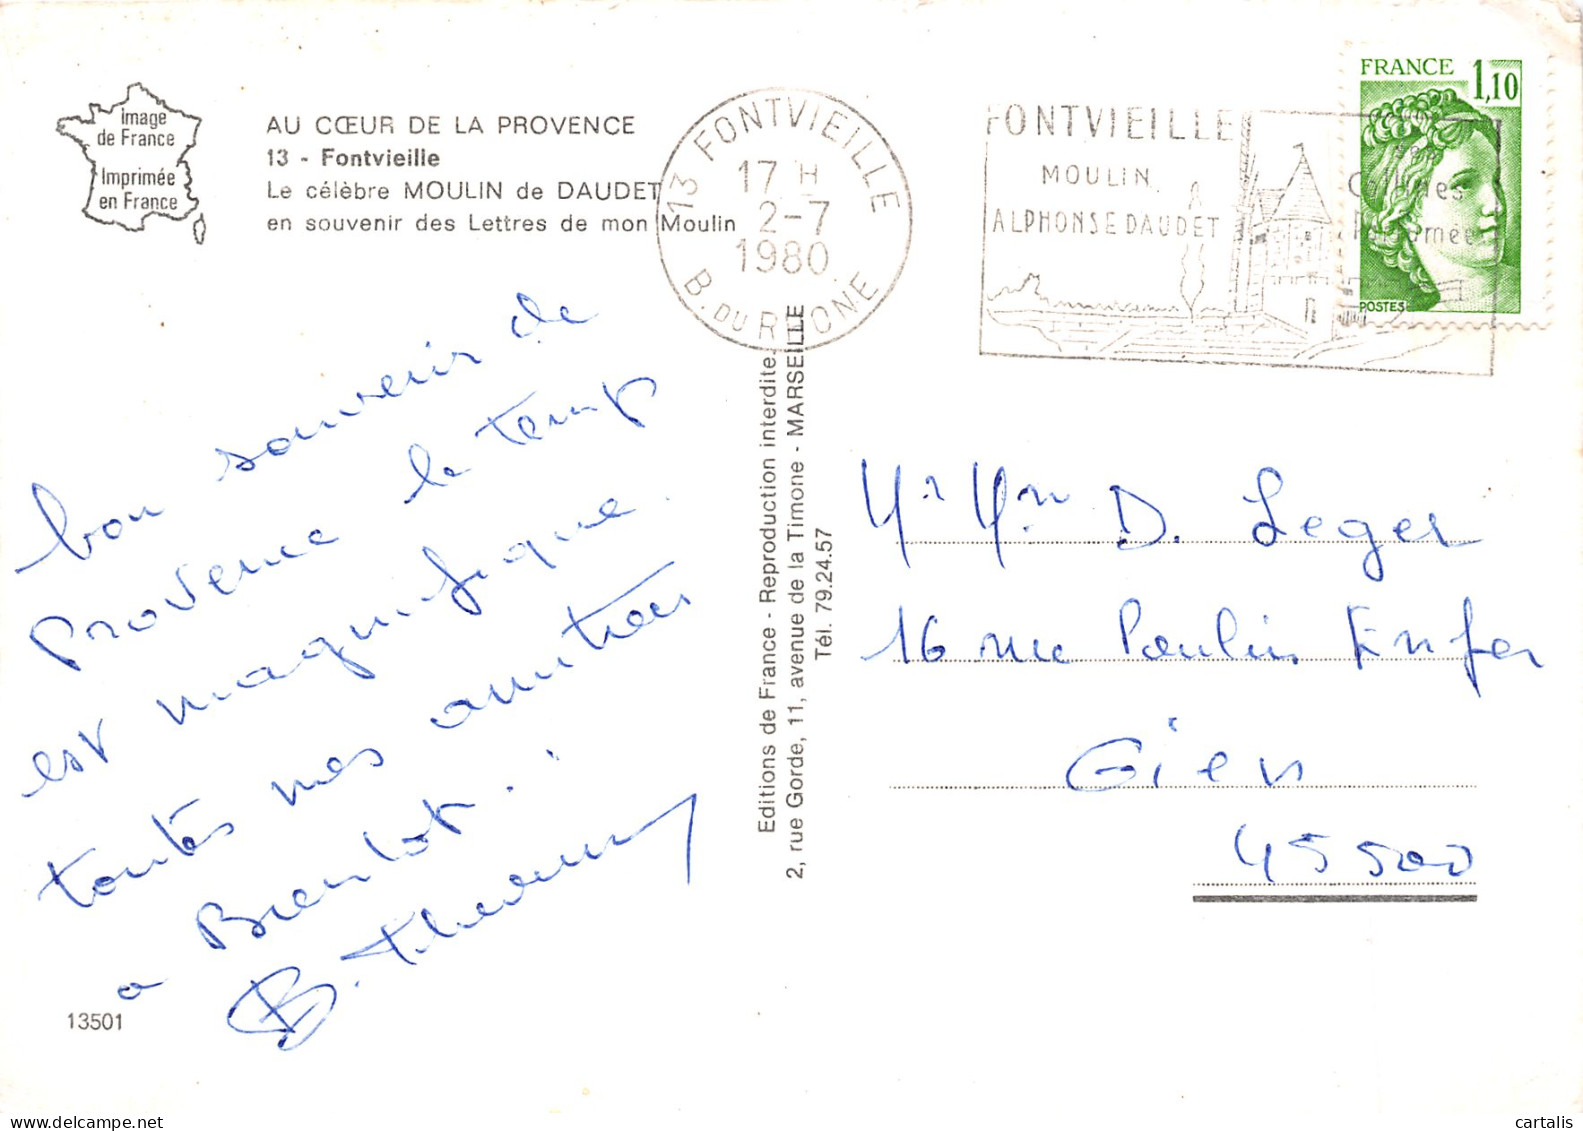 image
de France
Imprimée
en France
AU CŒUR DE LA PROVENCE
13 - Fontvieille
Le célèbre MOULIN de DAUDET
en souvenir des Lettres de mon Moulin
13 FONTVIEILLE
17 H
2-7
1980
B. DU RHONE
FONTVIEILLE
MOULIN
ALPHONSE DAUDET
Collines
Parfumées
FRANCE 1,10
POSTES
bon souvenir de
Provence le temps
est magnifique.
toutes mes amitiés
a Bientôt.
B.
13501
Editions de France - Reproduction interdite
2, rue Gorde, 11, avenue de la Timone - MARSEILLE
Tél. 79.24.57
Mr Mme D. Leger
16 rue Paulin Enfer
Gien
45500
www.delcampe.net
cartalis